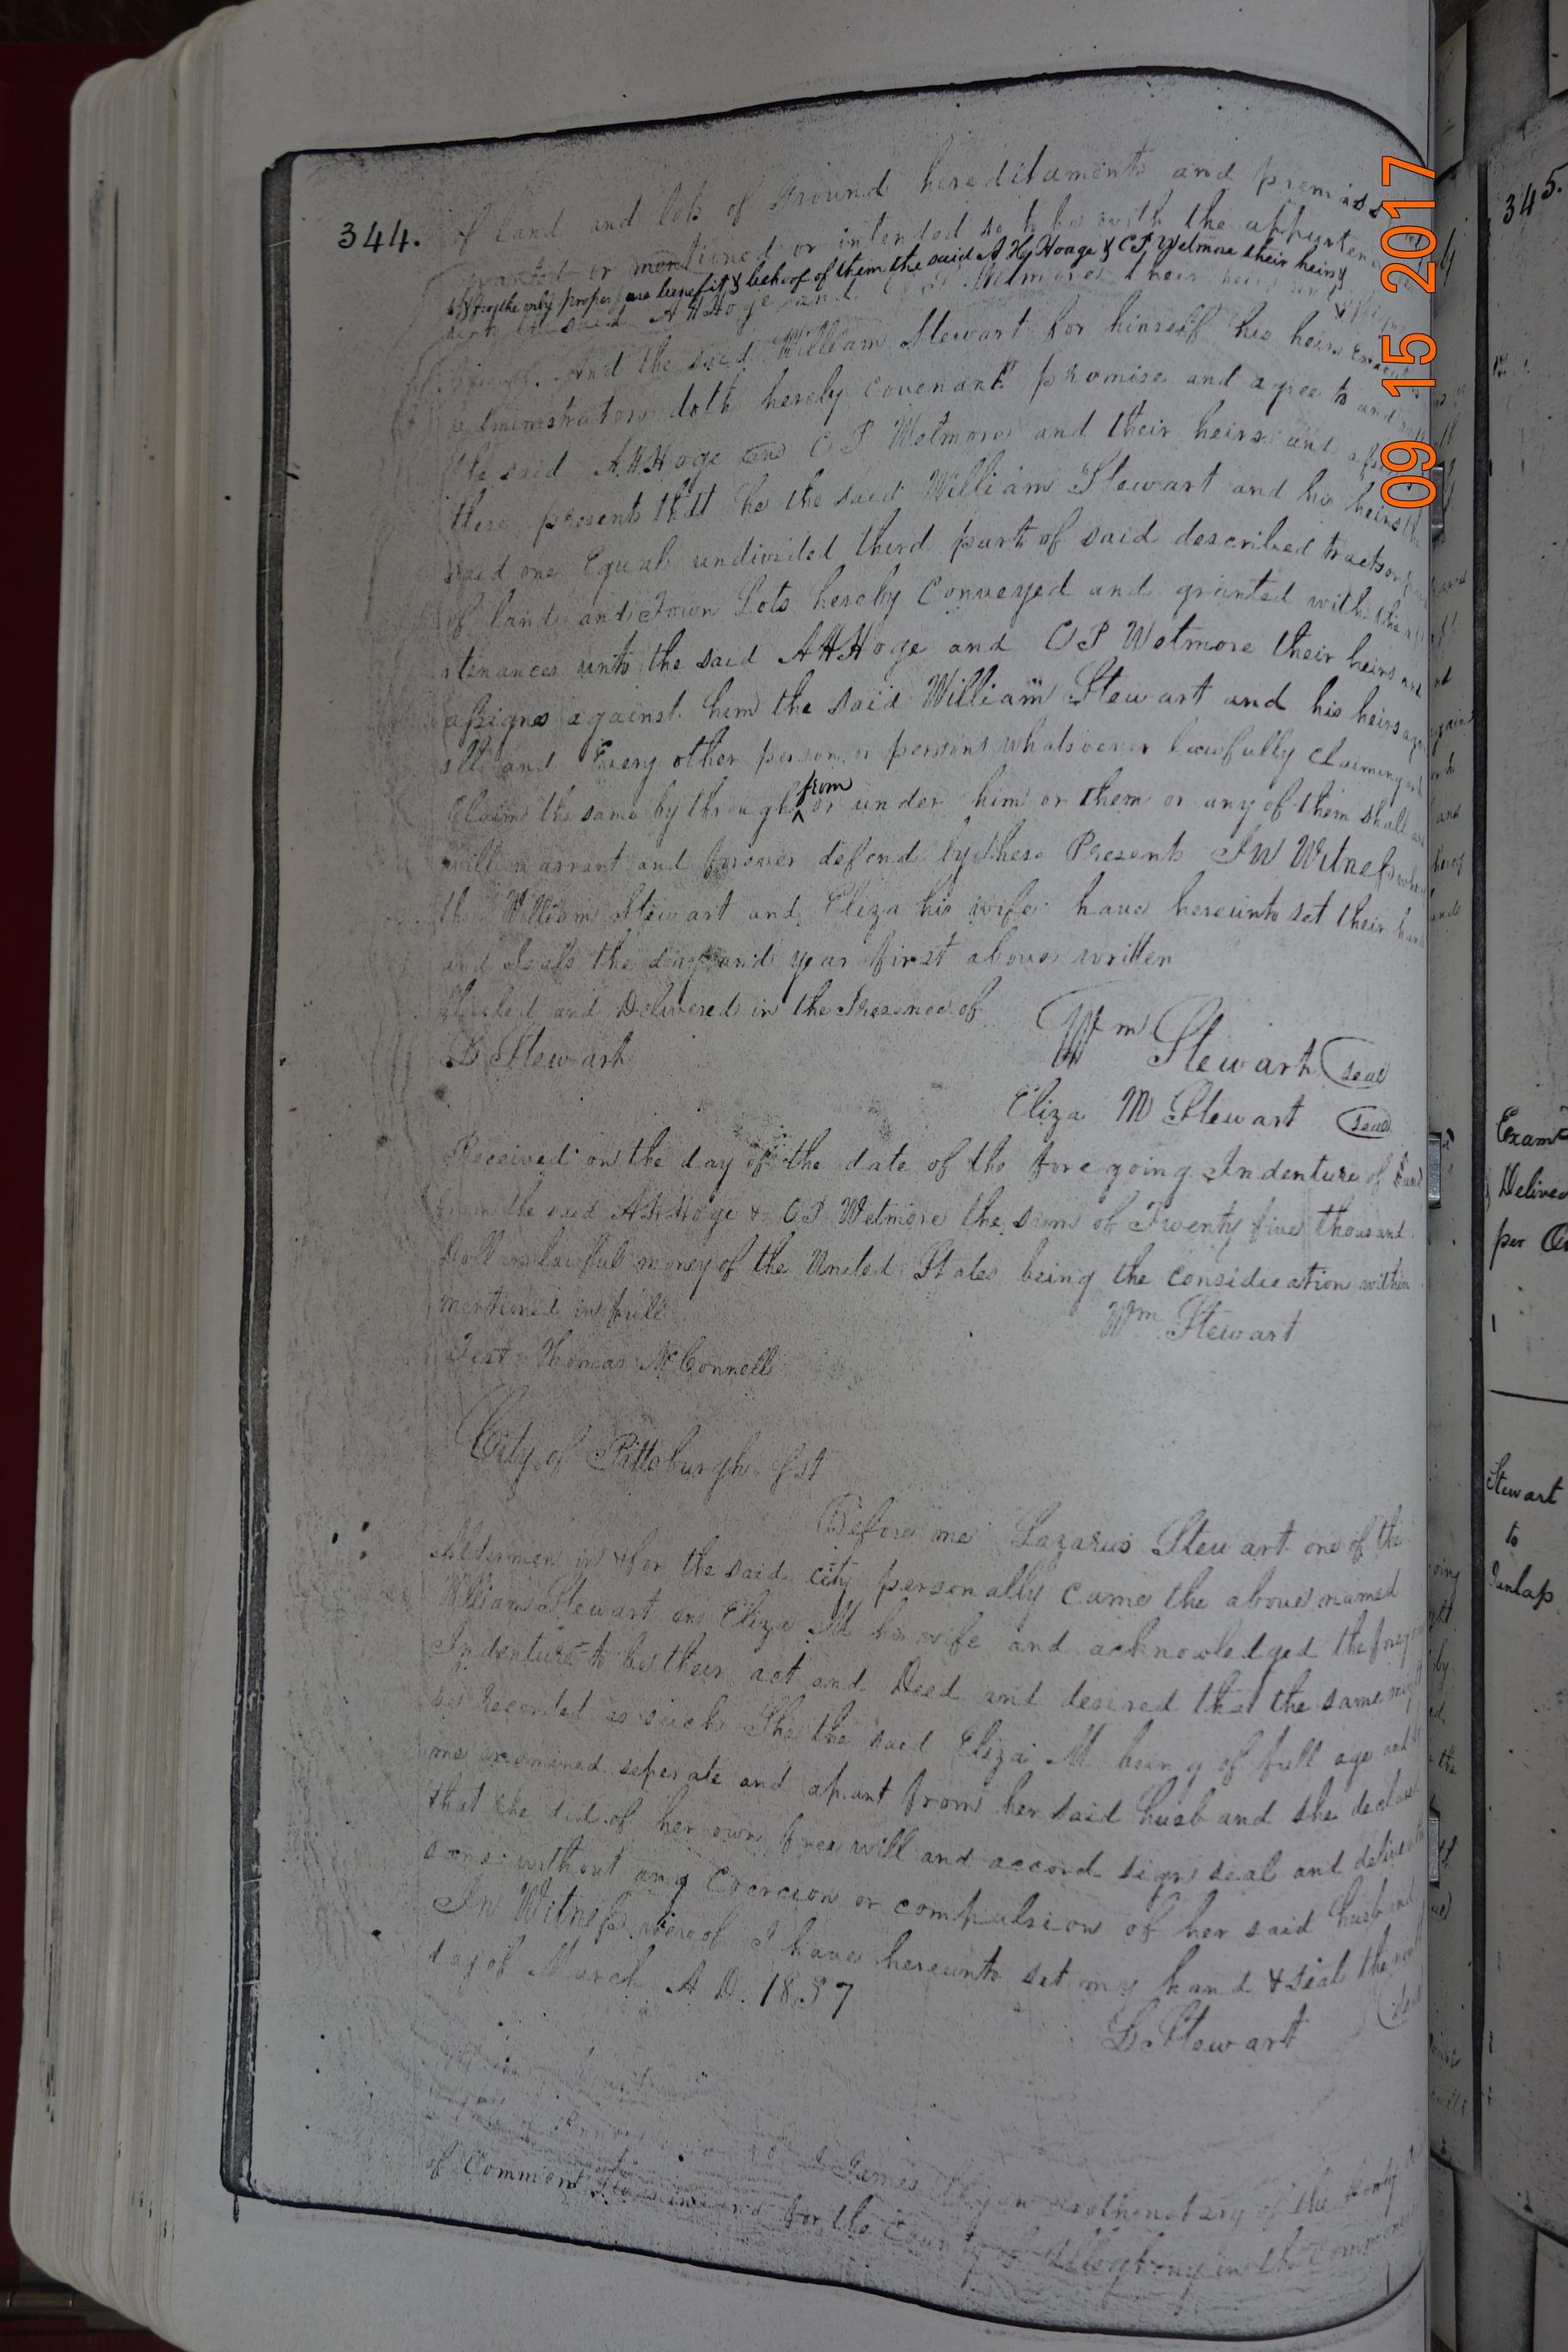 344.
of Land and lots of Ground hereditaments and premises
granted or mentioned or intended so to be with the appurten
to & for the only proper use benefit & behoof of them the said A H Hoage & C P Wetmore their heirs &
said A H Hoge and Wetmore their heirs and
forever. And the said William Stewart for himself his heirs Executors
administrators doth hereby covenant promise and agree to and with
the said A H Hoge and O P Wetmore and their heirs and assigns
these presents that he the said William Stewart and his heirs the
said one Equal undivided third part of said described tracts or
of land and Town Lots hereby Conveyed and granted with the
rtenances unto the said A H Hoge and O P Wetmore their heirs and
assigns against him the said William Stewart and his heirs
all and Every other person or persons whatsoever lawfully Claiming
Claim the same by through from or under him or them or any of them shall and
will warrant and forever defend by these Presents In Witness
the William Stewart and Eliza his wife have hereunto set their
and Seals the day and year first above written
Sealed and Delivered in the Presence of
L Stewart
Wm Stewart Seal
Eliza M Stewart Seal
Received on the day of the date of the foregoing Indenture of
from the said A H Hoge & O P Wetmore the sum of Twenty five thousand
Dollars lawful money of the United States being the consideration within
mentioned in full
Wm Stewart
Test Thomas McConnell
City of Pittsburgh Sst
Before me Lazarus Stewart one of the
Aldermen in & for the said city personally came the above named
William Stewart and Eliza M his wife and acknowledged the
Indenture to be their act and Deed and desired that the same
be Recorded as such She the said Eliza M being of full age and
me examined seperate and apart from her said husband she
that she did of her own free will and accord sign seal and
same without any Coercion or compulsion of her said husband
In Witness whereof I have hereunto set my hand & seal the
day of March A D. 1837
L Stewart
I James prothonotary of the
of Common Pleas in and for the County of Allegheny in the
345.
Exam
Delive
per
Stewart
to
Dunlap
09 15 2017